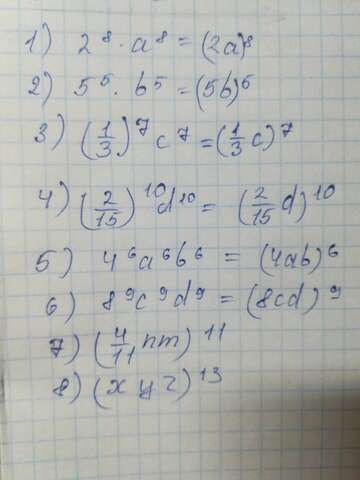 1) 2⁸ · a⁸ = (2a)⁸
2) 5⁵ · b⁵ = (5b)⁵
3) (1/3)⁷ c⁷ = (1/3 c)⁷
4) (2/15)¹⁰ d¹⁰ = (2/15 d)¹⁰
5) 4⁶a⁶b⁶ = (4ab)⁶
6) 8⁹c⁹d⁹ = (8cd)⁹
7) (4/11 nm)¹¹
8) (xyz)¹³